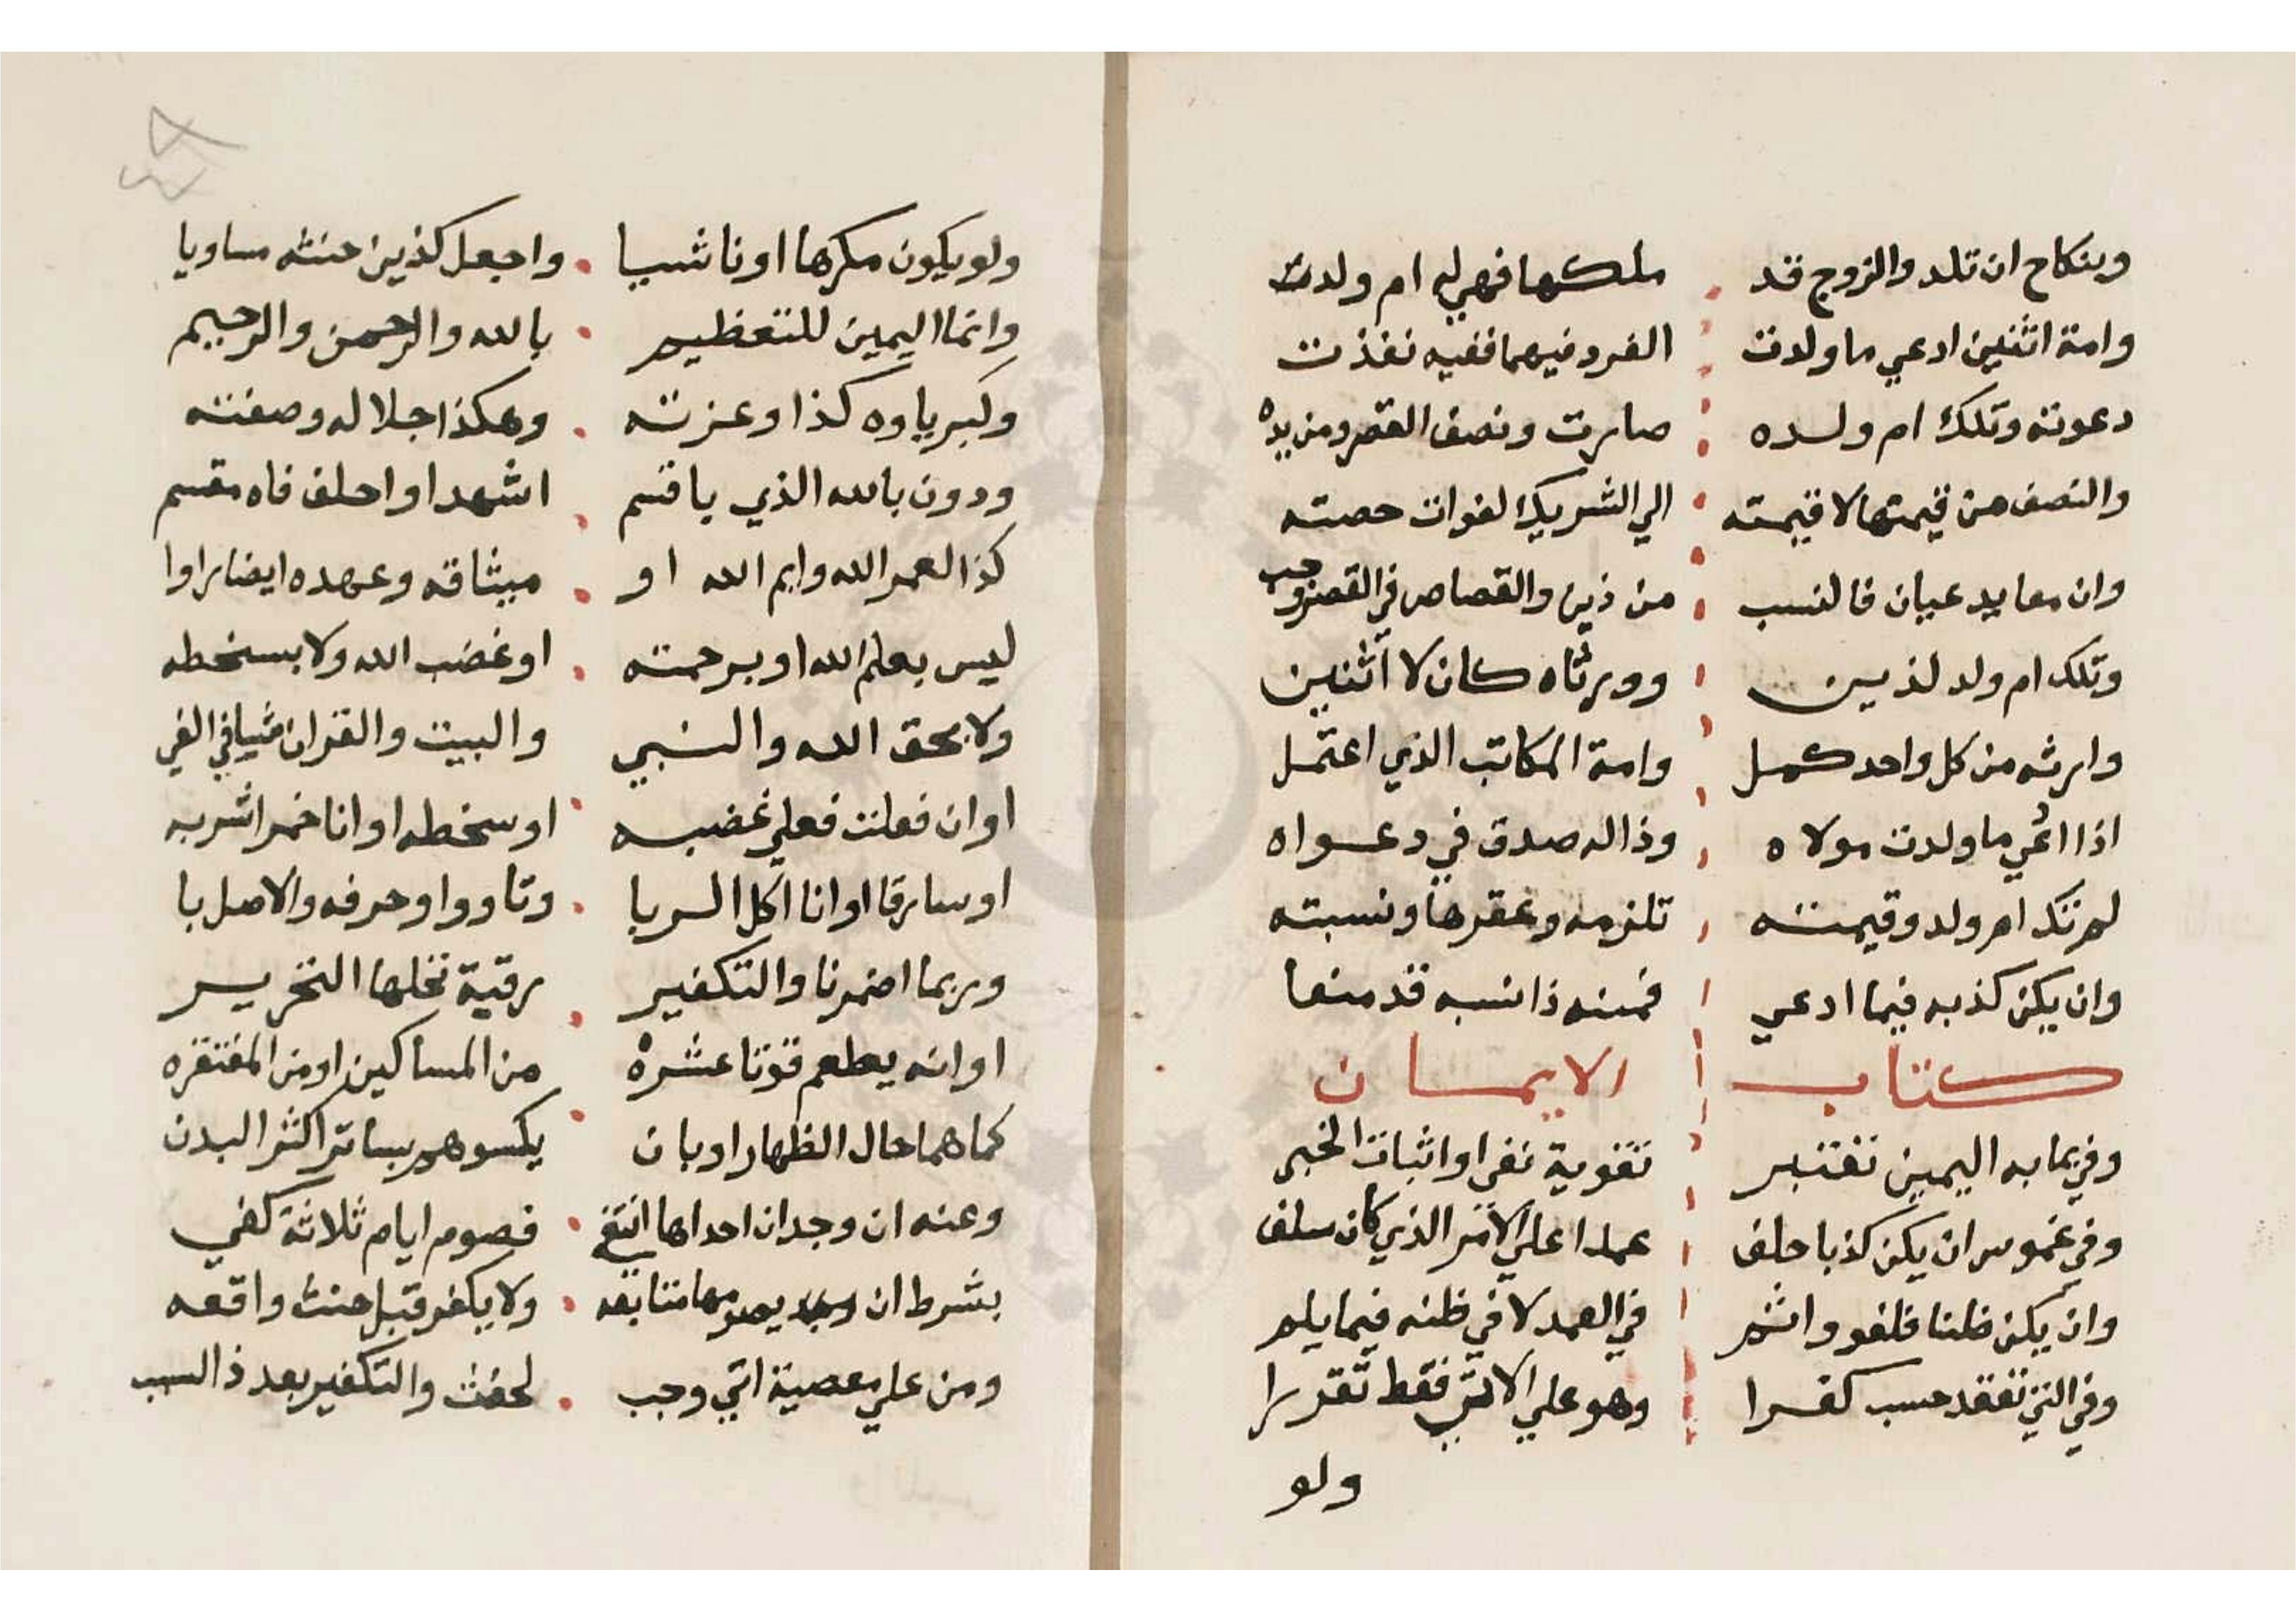 وبنكاح ان تلد والزوج قد ملكها فهي له ام ولدت
وامة اثنين ادعي ما ولدت الفرد فيهما ففيه نفذت
دعوته وتلك ام ولده صارت ونصف العقر من يده
والنصف من قيمتها لا قيمته الي الشريك لفوات حصته
وان معا يدعيان فالنسب من ذين والقصاص في العقر وجب
وتلك ام ولد لذين وورثاه كان لا اثنين
وارثه من كل واحد كمل وامة المكاتب الذي اعتمل
اذا ادعي ما ولدت مولاه وذا له صدق في دعواه
لم تك ام ولد وقيمته تلزمه وعقرها ونسبته
وان يكن كذبه فيما ادعي فمنه ذا نسبه قد منعا
كتاب الايمان
وفي بما به اليمين تعتبر تقوية نفي او اثبات الخبر
وفي غموس ان يكن كذبا حلف عمدا علي الامر الذي كان سلف
وان يكن ظنا فلغو واثم في العمد لا في ظنه فيما يلم
وفي التي تعقد حسب كفرا وهو علي الاتي فقط تقررا
ولو
ولو يكون مكرها او ناسيا واجعل كذين حنثه مساويا
وانما اليمين للتعظيم بالله والرحمن والرحيم
وكبرياوه كذا وعزته وهكذا جلاله وصفته
ودون بالله الذي يا قسم اشهد او احلف فاه مقسم
كذا لعمر الله وايم الله او ميثاقه وعهده ايضا راوا
ليس بعلم الله او برحمته او غضب الله ولا بسخطه
ولا بحق الله والنبي والبيت والقران في
او ان فعلت فعلي غضبه او سخطه او انا خمرا شربه
او سارقا او انا اكل الربا وتا وواو حرفه والاصل با
وربما اضمرنا والتكفير رقبة تخلها التحرير
او انه يطعم قوتا عشره من المساكين او من المفتقره
كما هما حال الظهار او بان يكسوهم بساتر اكثر البدن
وعنه ان وجدان احداها انتفي فصوم ايام ثلاثة كفي
بشرط ان يصومها متتابعه ولا يكفر قبل حنث واقعه
ومن علي معصية اتي وجب لحنث والتكفير بعد ذا السبب